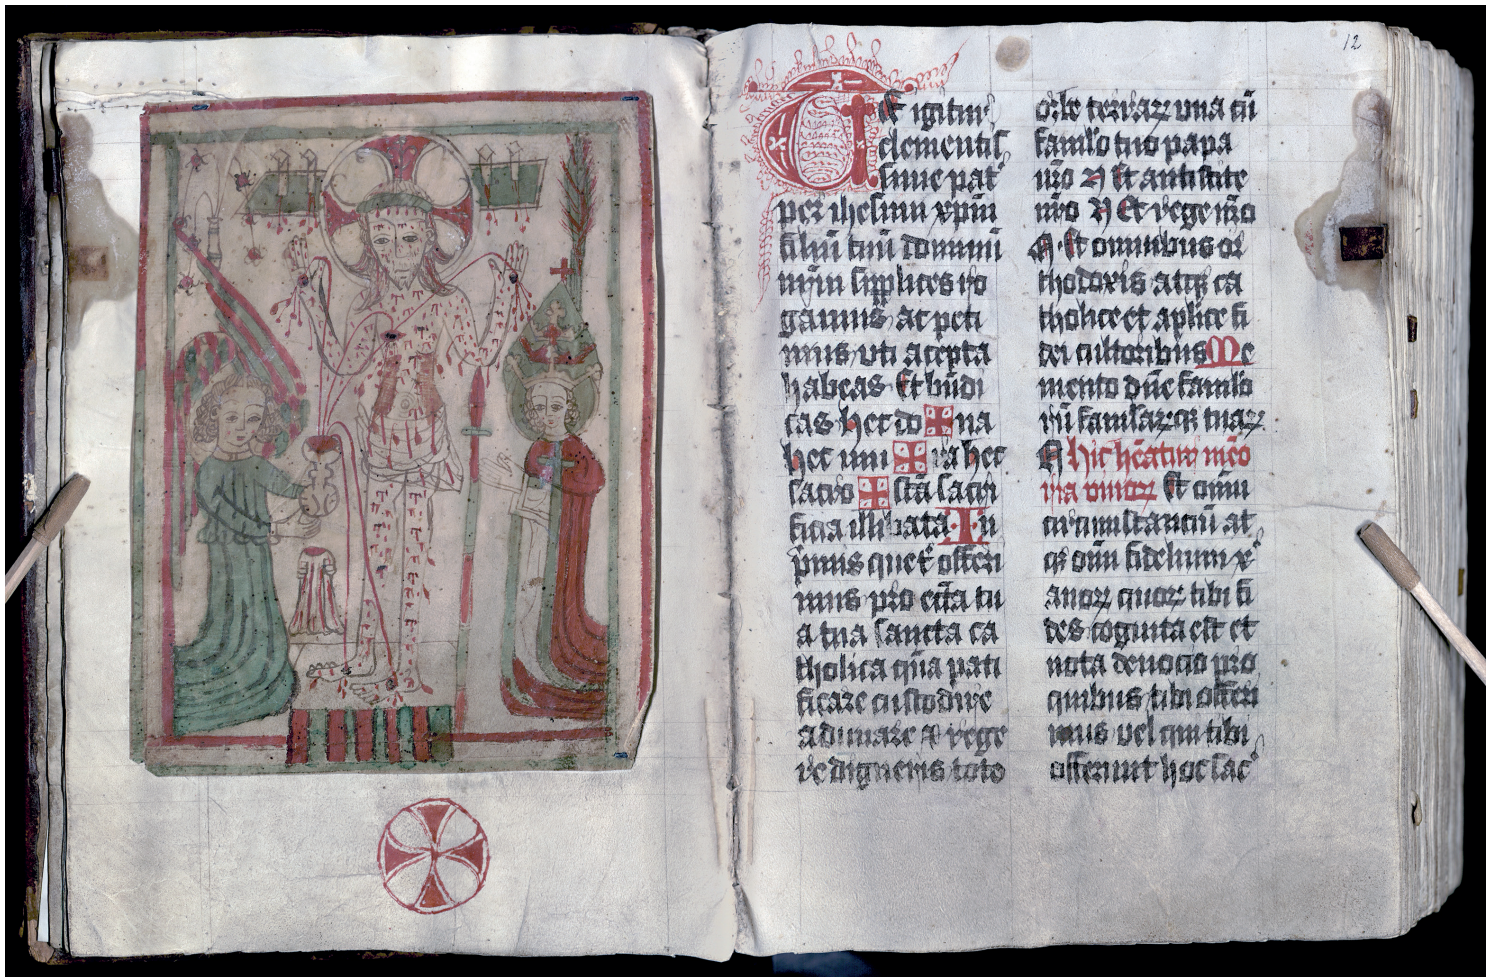 12
Te igitur
clementis
sime pat᷒
per ihesum xp̄m
filiū tuū dominū
nr̄m supplices ro
gamus ac peti
mus vti accepta
habeas Et bn̄di
cas hec do ✠ na
hec mu ✠ n̄ra hec
sacro ✠ scā sacri
ficia illibata In
p̄mis que t᷒ offeri
mus pro ecc̄a tu
a tua sancta ca
tholica q̄ua pati
ficare custodire
adunare ⁊ rege
re digneris toto
orbe terrarꝝ vna cū
famulo tuo papa
nr̄o N Et antistite
nr̄o N Et rege nr̄o
N Et omnibus or
thodoxis atqꝫ ca
tholice et aplice fi
dei cultoribus Me
mento dn̄e famulo
rū famularūqꝫ tuarꝝ
N Hic hēatur mēo
ria viuorꝝ Et omniū
circumstanciū at
qꝫ om̄ fidelium x᷒
anorꝝ quorꝝ tibi fi
des cognita est et
nota deuocio pro
quibus tibi offeri
mus vel qui tibi
offerunt hoc sac᷒